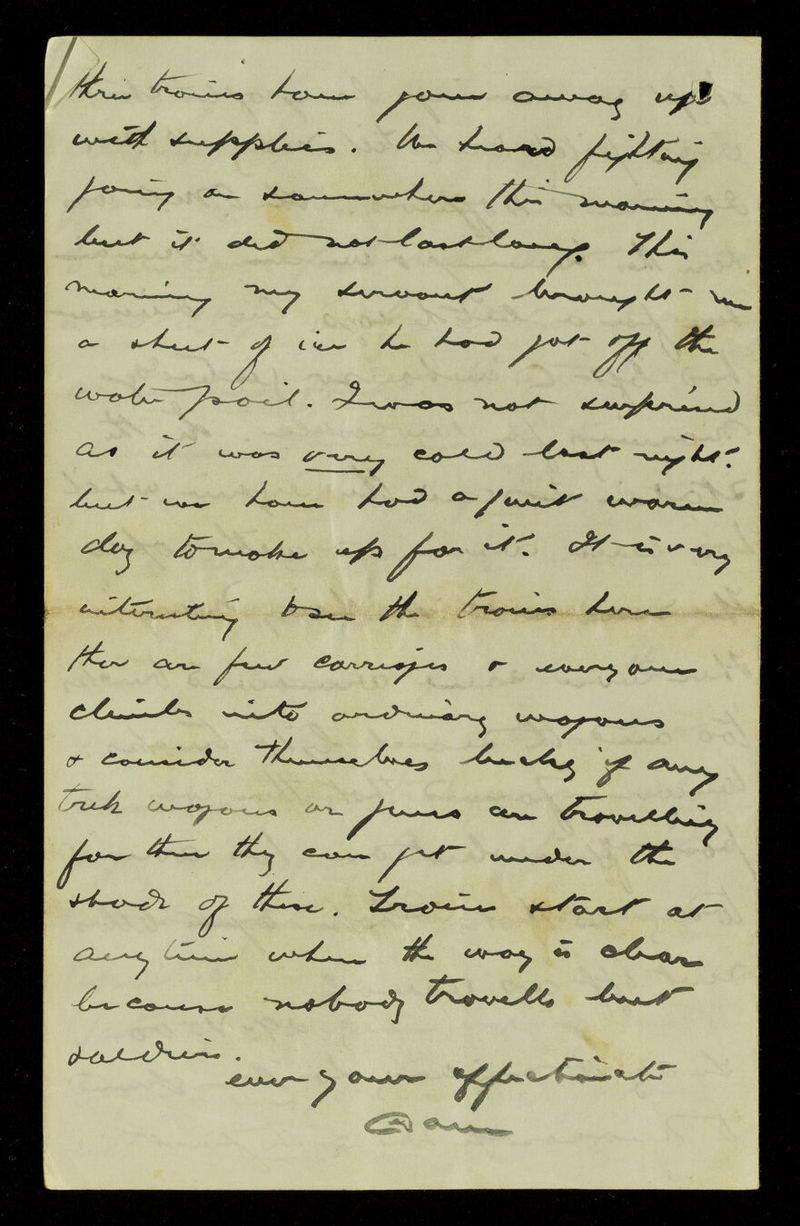 three trains have gone away up
with supplies. We heard fighting
going on somewhere this morning
but it did not last long. This
morning my servant brought me
a sheet of ice he had got off the
water pail. I was not surprised
as it was very cold last night.
but we have had a quite warm
day to make up for it. It is very
interesting to see the trains here
ther are few carriages & everyone
climbs into ordinary wagons
& consider themselves lucky if any
trek wagons or guns are travelling
for then they can get under the
shade of these. Trains start at
any time when the way is clear
because nobody travells but
soldiers.
ever your affectionate